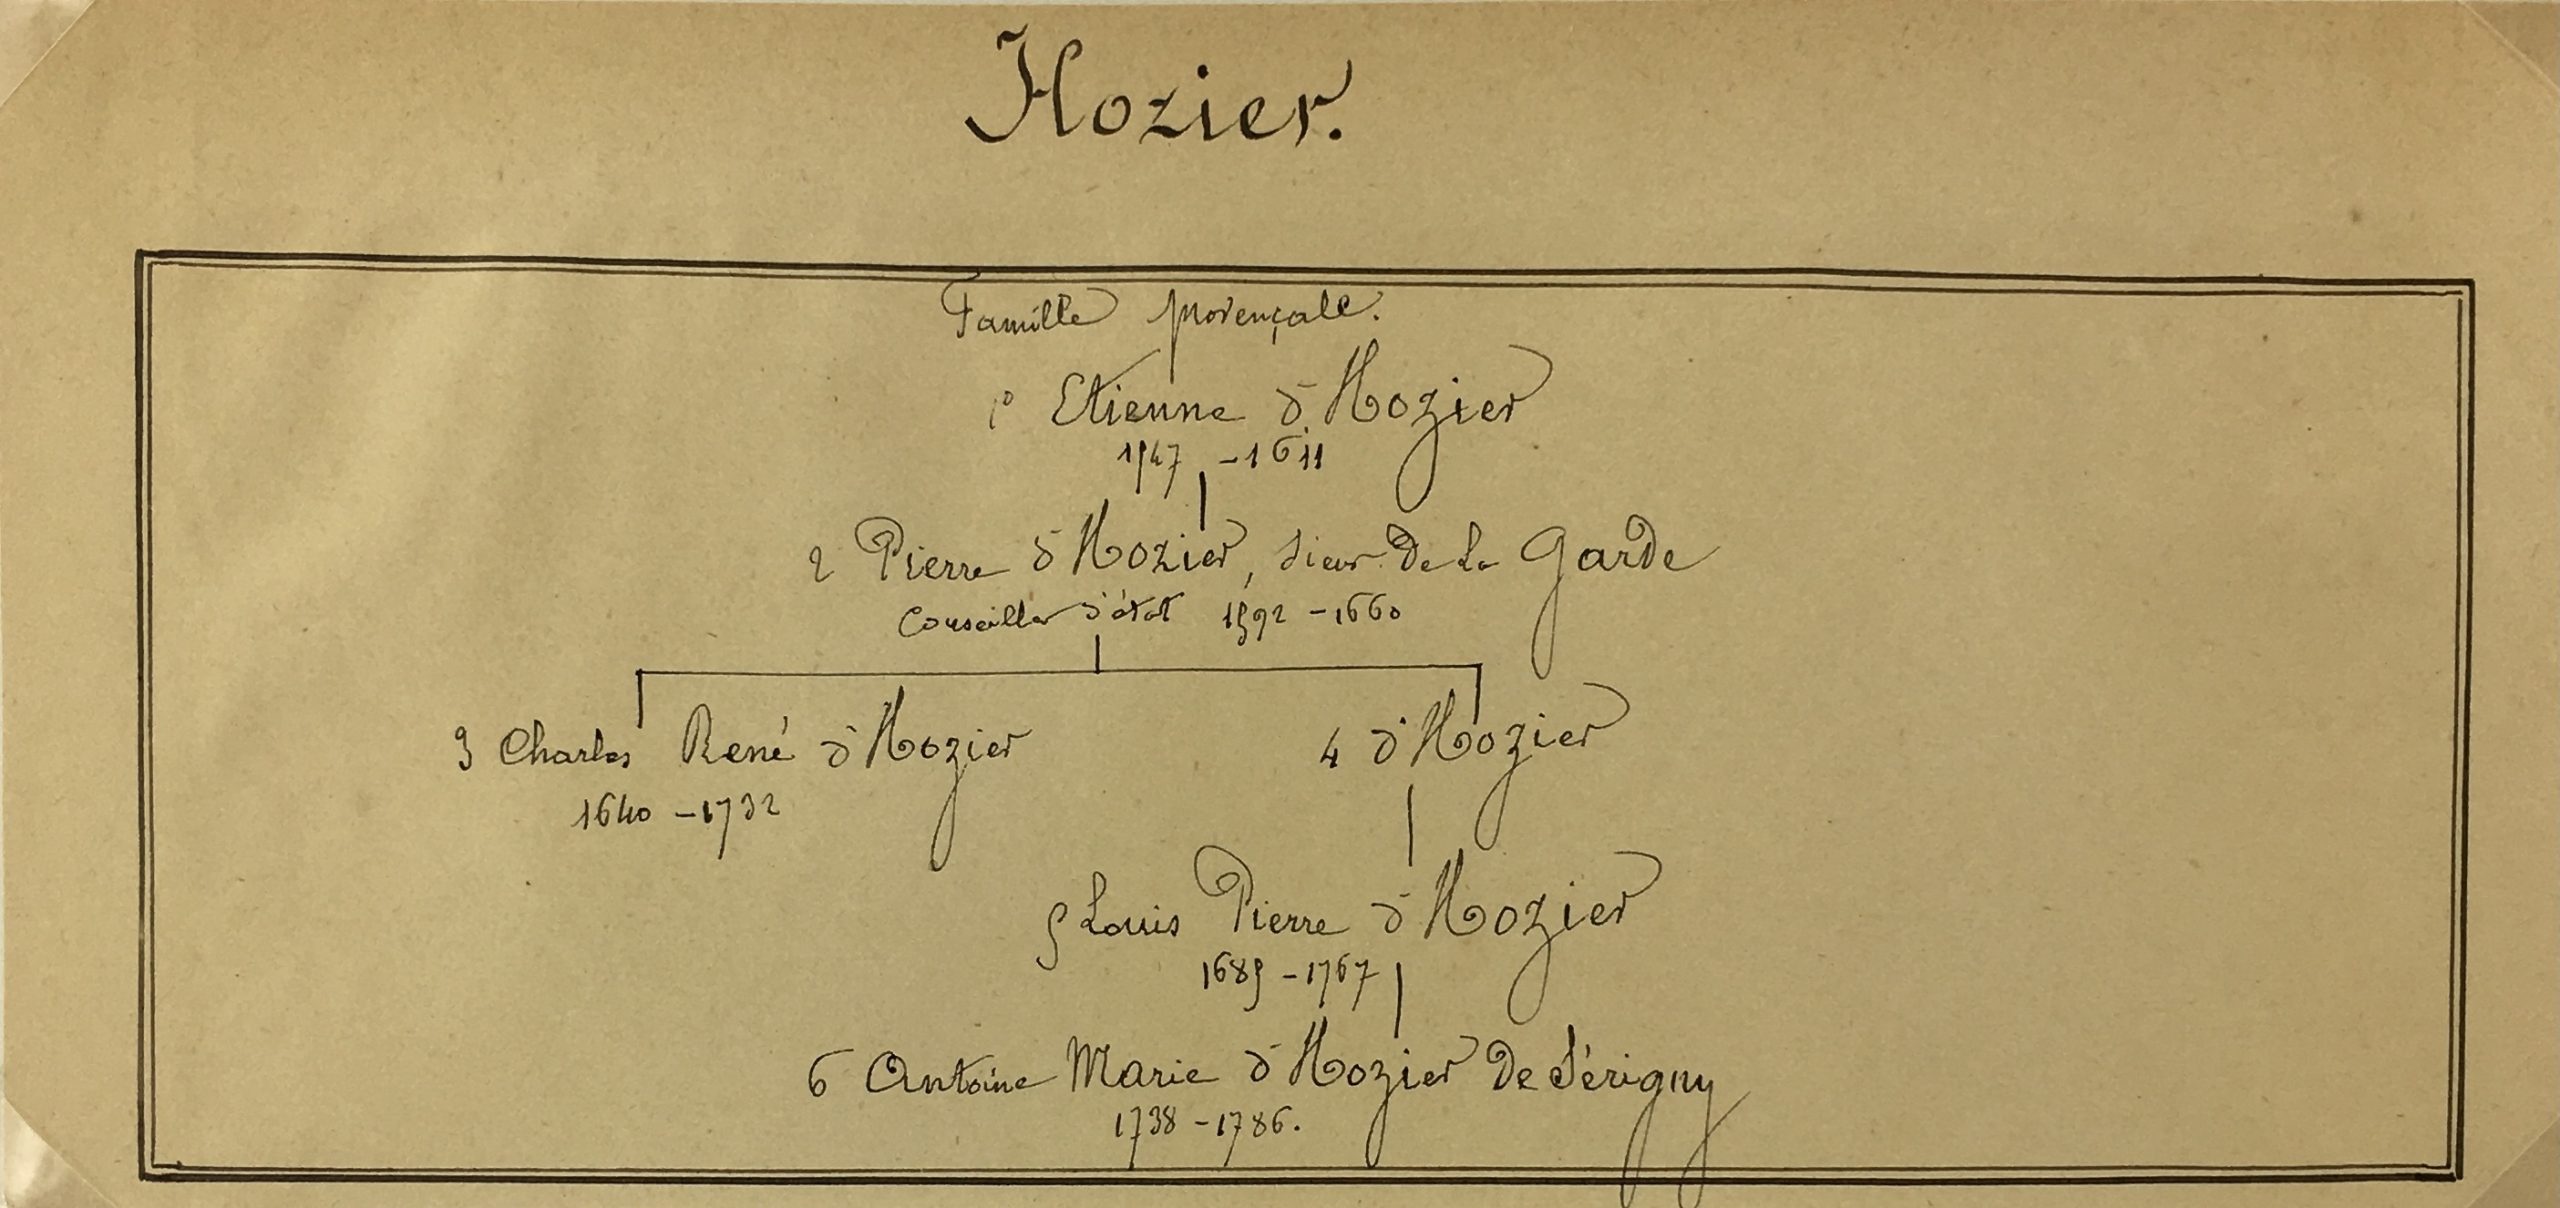 Hozier.
Famille provençale.
1º Etienne d'Hozier
1547 - 1611
2 Pierre d'Hozier, sieur de la Garde
Conseiller d'état 1592 - 1660
3 Charles René d'Hozier
4 d'Hozier
1640 - 1732
5 Louis Pierre d'Hozier
1685 - 1767
6 Antoine Marie d'Hozier de Sérigny
1738 - 1786.